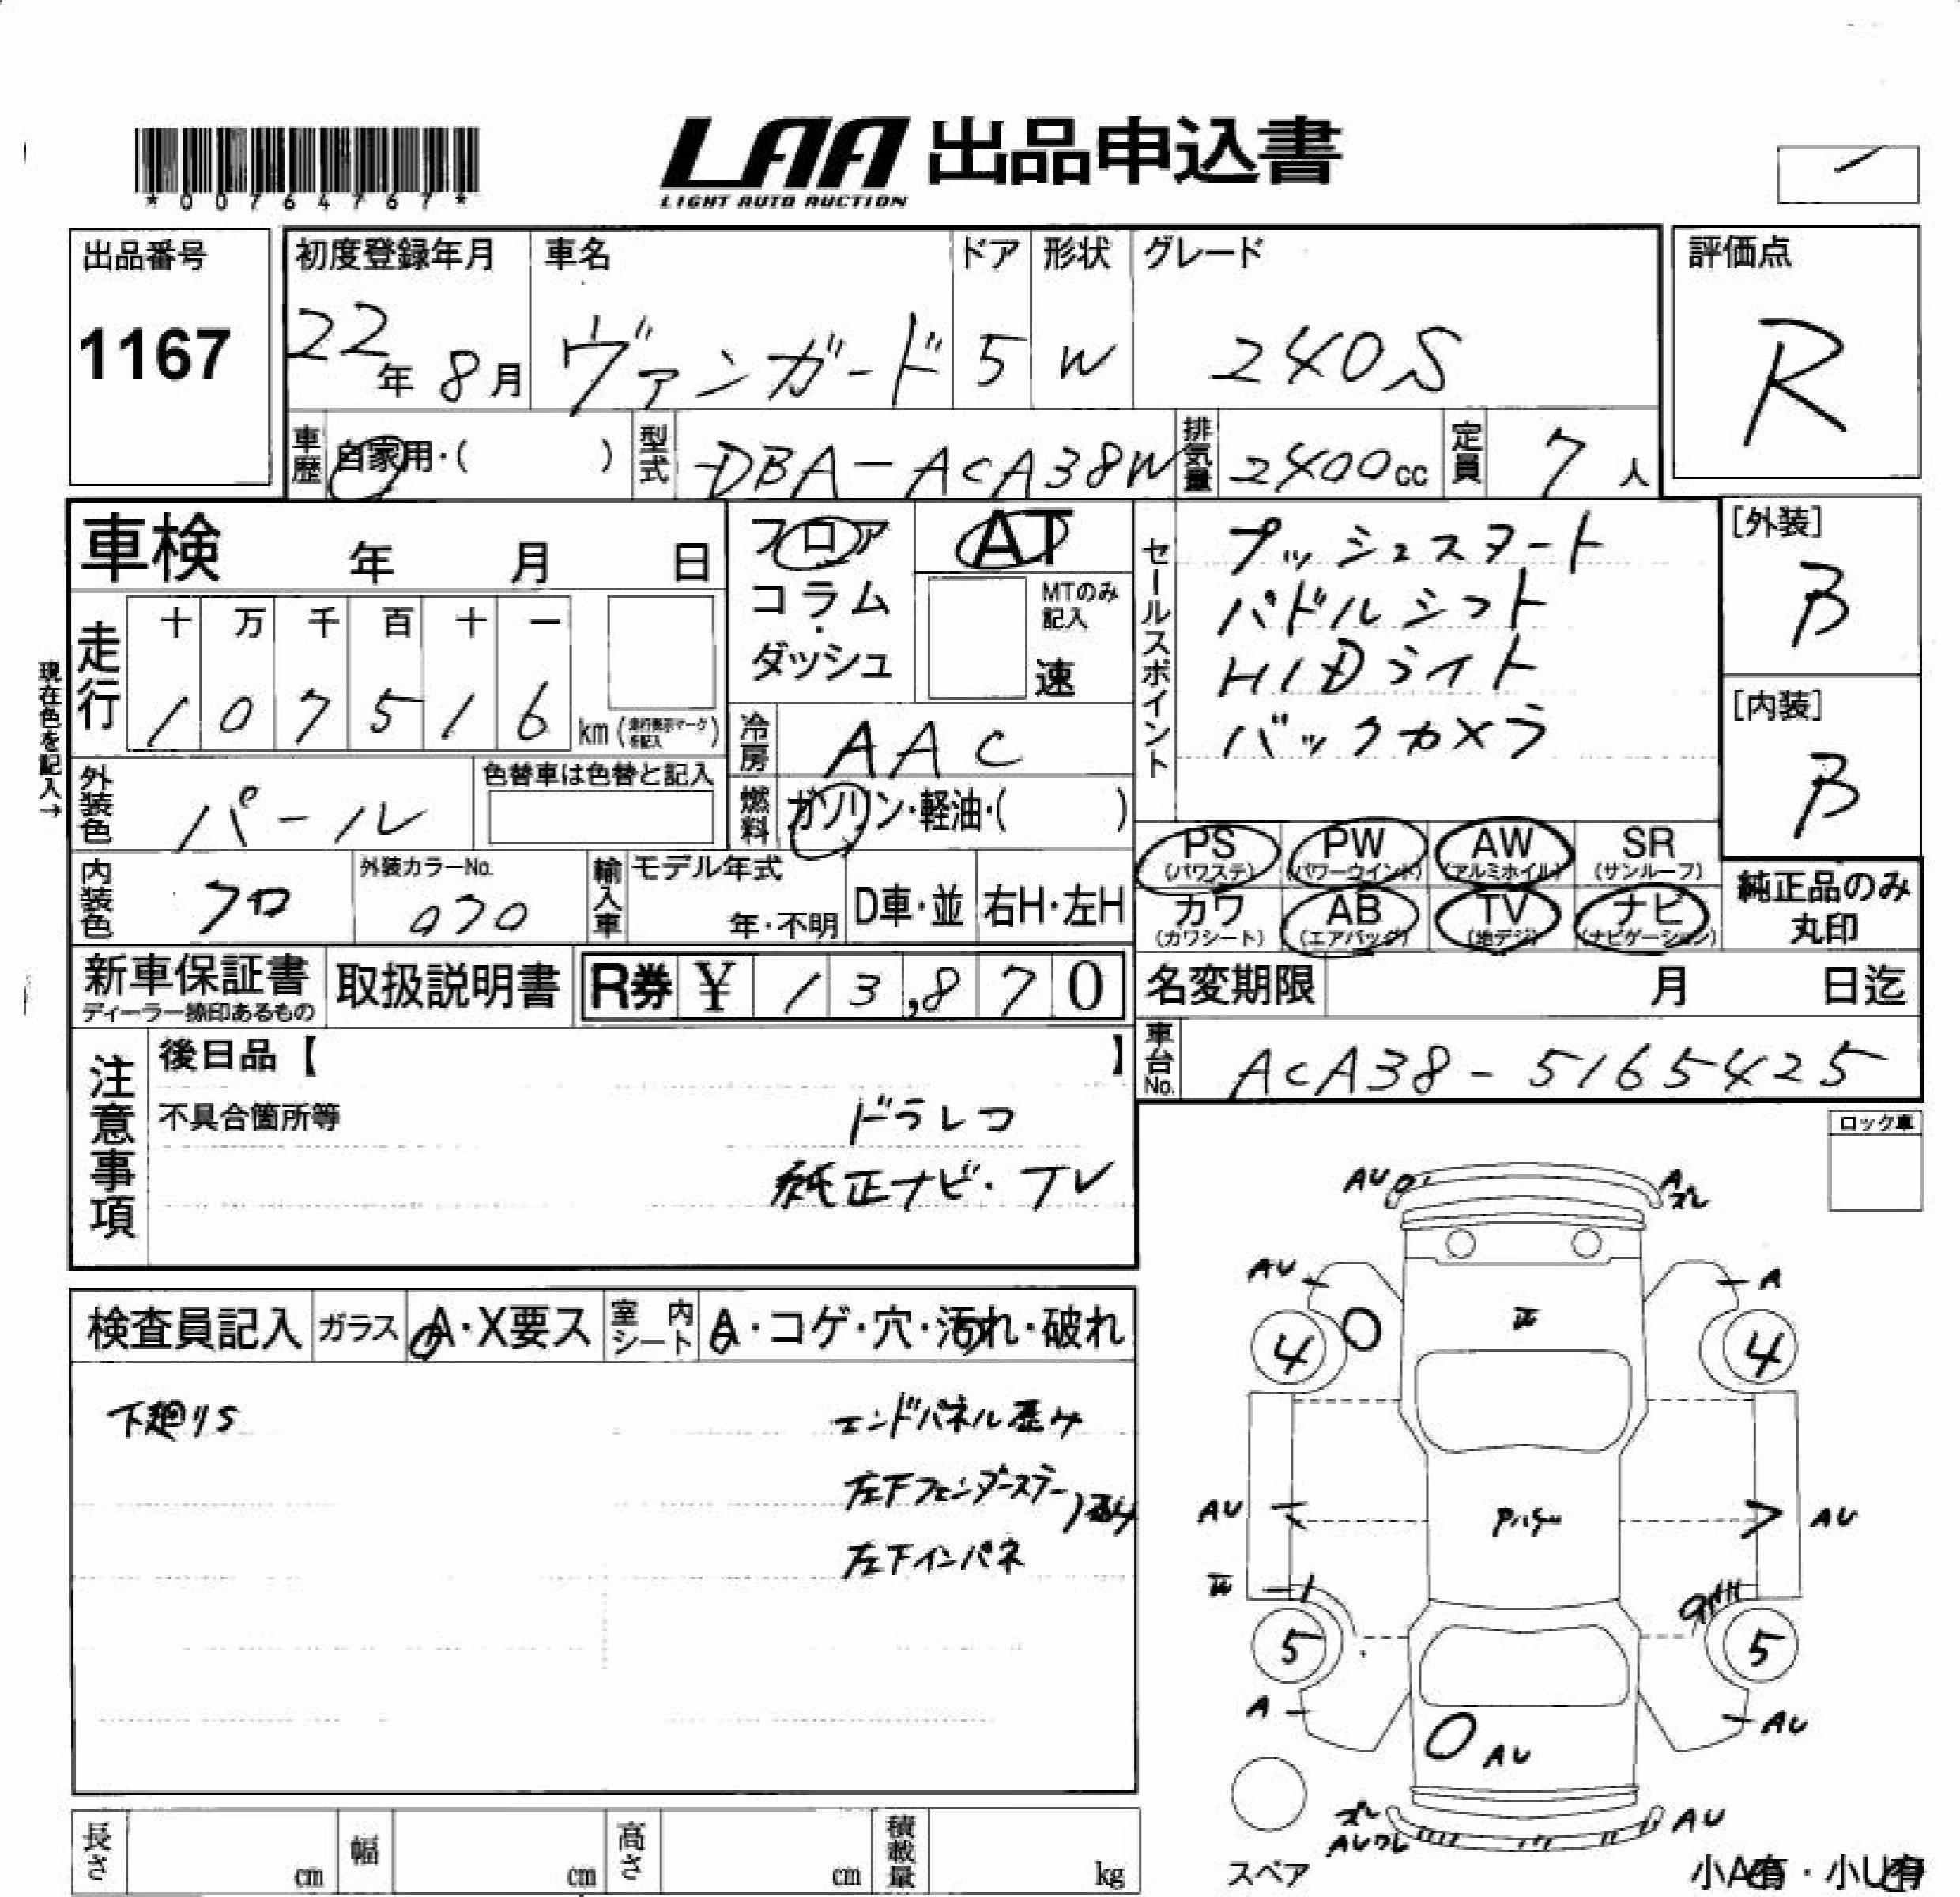 *00764767*
LAA 出品申込書
LIGHT AUTO AUCTION
出品番号
1167
初度登録年月
22年8月
車名
ヴァンガード
ドア
5
形状
W
グレード
240S
評価点
R
車歴
自家用・( )
型式
DBA-ACA38W
排気量
2400cc
定員
7人
車検 年 月 日
フロア
コラム
・
ダッシュ
AT
MTのみ
記入
速
セールスポイント
プッシュスタート
パドルシフト
HIDライト
バックカメラ
[外装]
B
[内装]
B
現在色を記入→
走行
十 万 千 百 十 一
1 0 7 5 1 6 km(走行表示マークを記入)
冷房
AAC
外装色
パール
色替車は色替と記入
燃料
ガソリン・軽油・( )
PS
(パワステ)
PW
(パワーウインド)
AW
(アルミホイル)
SR
(サンルーフ)
カワ
(カワシート)
AB
(エアバッグ)
TV
(地デジ)
ナビ
(ナビゲーション)
純正品のみ
丸印
内装色
クロ
外装カラーNo.
070
輸入車
モデル年式
年・不明
D車・並
右H・左H
新車保証書
ディーラー捺印あるもの
取扱説明書
R券 ¥ 13,870
名変期限 月 日迄
車台No.
ACA38-5165425
注意事項
後日品【 】
不具合箇所等
ドラレコ
純正ナビ・TV
ロック車
検査員記入
ガラス
A・X要ス
室内シート
A・コゲ・穴・汚れ・破れ
下廻りS
エンドパネル歪み
左下フェンダーステー
左下インパネ
AU
A
ズレ
AU
A
4
4
AU
AU
5
5
A
AU
AU
ズレ
AUワレ
AU
スペア
小A有・小U有
長さ cm
幅 cm
高さ cm
積載量 kg